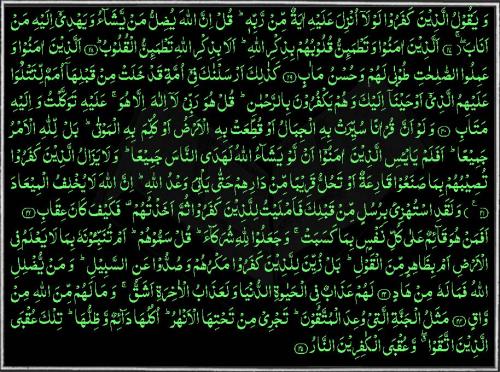 وَ یَقُوۡلُ الَّذِیۡنَ کَفَرُوۡا لَوۡلَاۤ اُنۡزِلَ عَلَیۡهِ اٰیَةٌ مِّنۡ رَّبِّهٖ ؕ قُلۡ اِنَّ اللّٰهَ یُضِلُّ مَنۡ یَّشَآءُ وَ یَهۡدِیۡۤ اِلَیۡهِ مَنۡ
اَنَابَ ﴿۲۷﴾ اَلَّذِیۡنَ اٰمَنُوۡا وَ تَطۡمَئِنُّ قُلُوۡبُهُمۡ بِذِکۡرِ اللّٰهِ ؕ اَلَا بِذِکۡرِ اللّٰهِ تَطۡمَئِنُّ الۡقُلُوۡبُ ﴿۲۸﴾ اَلَّذِیۡنَ اٰمَنُوۡا وَ
عَمِلُوا الصّٰلِحٰتِ طُوۡبٰی لَهُمۡ وَ حُسۡنُ مَاٰبٍ ﴿۲۹﴾ کَذٰلِکَ اَرۡسَلۡنٰکَ فِیۡۤ اُمَّةٍ قَدۡ خَلَتۡ مِنۡ قَبۡلِهَاۤ اُمَمٌ لِّتَتۡلُوَا۠
عَلَیۡهِمُ الَّذِیۡۤ اَوۡحَیۡنَاۤ اِلَیۡکَ وَ هُمۡ یَکۡفُرُوۡنَ بِالرَّحۡمٰنِ ؕ قُلۡ هُوَ رَبِّیۡ لَاۤ اِلٰهَ اِلَّا هُوَ ۚ عَلَیۡهِ تَوَکَّلۡتُ وَ اِلَیۡهِ
مَتَابِ ﴿۳۰﴾ وَ لَوۡ اَنَّ قُرۡاٰنًا سُیِّرَتۡ بِهِ الۡجِبَالُ اَوۡ قُطِّعَتۡ بِهِ الۡاَرۡضُ اَوۡ کُلِّمَ بِهِ الۡمَوۡتٰی ؕ بَلۡ لِّلّٰهِ الۡاَمۡرُ
جَمِیۡعًا ؕ اَفَلَمۡ یَایۡـَٔسِ الَّذِیۡنَ اٰمَنُوۡۤا اَنۡ لَّوۡ یَشَآءُ اللّٰهُ لَهَدَی النَّاسَ جَمِیۡعًا ؕ وَ لَا یَزَالُ الَّذِیۡنَ کَفَرُوۡا
تُصِیۡبُهُمۡ بِمَا صَنَعُوۡا قَارِعَةٌ اَوۡ تَحُلُّ قَرِیۡبًا مِّنۡ دَارِهِمۡ حَتّٰی یَاۡتِیَ وَعۡدُ اللّٰهِ ؕ اِنَّ اللّٰهَ لَا یُخۡلِفُ الۡمِیۡعَادَ
﴿۳۱﴾ وَ لَقَدِ اسۡتُهۡزِیَٔ بِرُسُلٍ مِّنۡ قَبۡلِکَ فَاَمۡلَیۡتُ لِلَّذِیۡنَ کَفَرُوۡا ثُمَّ اَخَذۡتُهُمۡ ۟ فَکَیۡفَ کَانَ عِقَابِ ﴿۳۲﴾
اَفَمَنۡ هُوَ قَآئِمٌ عَلٰی کُلِّ نَفۡسٍۭ بِمَا کَسَبَتۡ ۚ وَ جَعَلُوۡا لِلّٰهِ شُرَکَآءَ ؕ قُلۡ سَمُّوۡهُمۡ ؕ اَمۡ تُنَبِّـُٔوۡنَهٗ بِمَا لَا یَعۡلَمُ فِی
الۡاَرۡضِ اَمۡ بِظَاهِرٍ مِّنَ الۡقَوۡلِ ؕ بَلۡ زُیِّنَ لِلَّذِیۡنَ کَفَرُوۡا مَکۡرُهُمۡ وَ صُدُّوۡا عَنِ السَّبِیۡلِ ؕ وَ مَنۡ یُّضۡلِلِ
اللّٰهُ فَمَا لَهٗ مِنۡ هَادٍ ﴿۳۳﴾ لَهُمۡ عَذَابٌ فِی الۡحَیٰوةِ الدُّنۡیَا وَ لَعَذَابُ الۡاٰخِرَةِ اَشَقُّ ۚ وَ مَا لَهُمۡ مِّنَ اللّٰهِ مِنۡ
وَّاقٍ ﴿۳۴﴾ مَثَلُ الۡجَنَّةِ الَّتِیۡ وُعِدَ الۡمُتَّقُوۡنَ ؕ تَجۡرِیۡ مِنۡ تَحۡتِهَا الۡاَنۡهٰرُ ؕ اُکُلُهَا دَآئِمٌ وَّ ظِلُّهَا ؕ تِلۡکَ عُقۡبَی
الَّذِیۡنَ اتَّقَوۡا ٭ۖ وَّ عُقۡبَی الۡکٰفِرِیۡنَ النَّارُ ﴿۳۵﴾